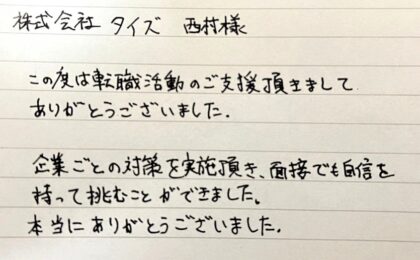 株式会社 タイズ 西村様
この度は転職活動のご支援頂きまして
ありがとうございました.
企業ごとの対策を実施頂き、面接でも自信を
持って挑むことができました。
本当にありがとうございました.